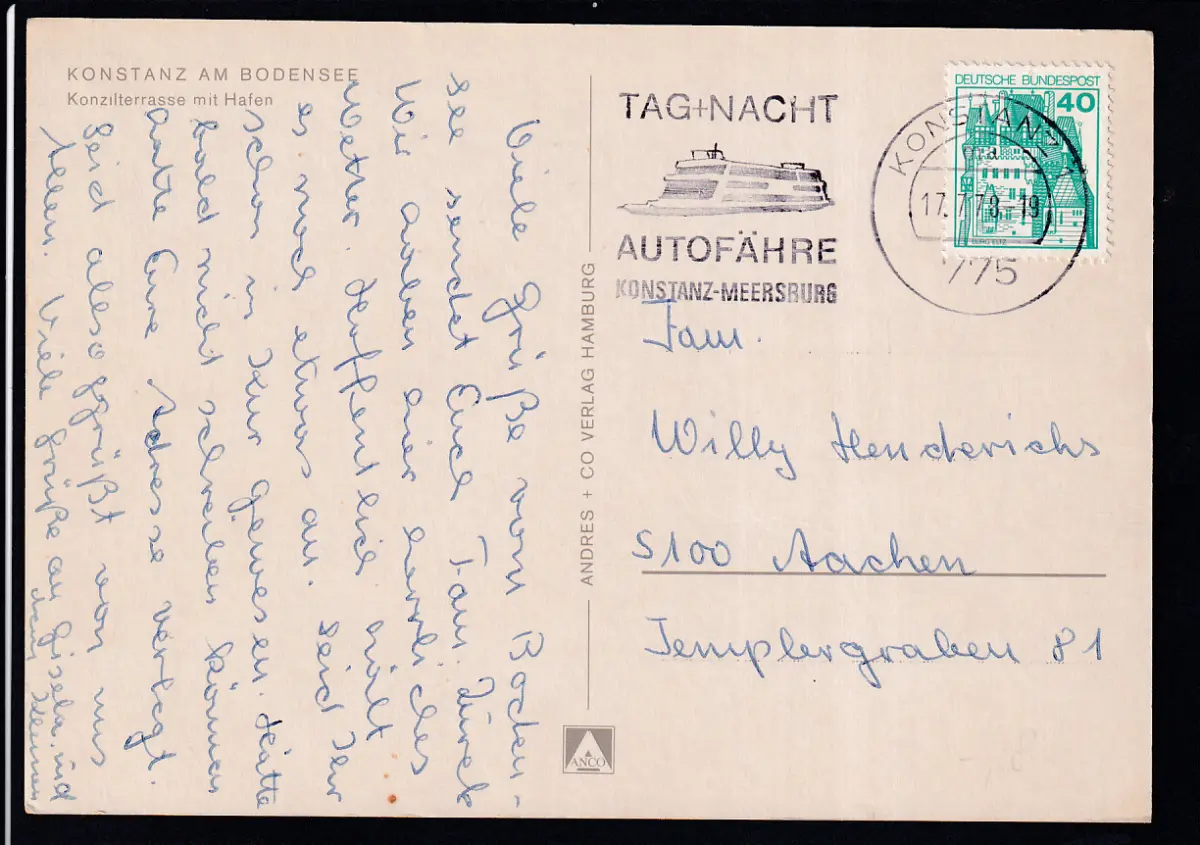 KONSTANZ AM BODENSEE
Konzilterrasse mit Hafen
Viele Grüße vom Boden-
see sendet Euch Fam. Zürek
Wir haben hier herrliches
Wetter. Hoffentlich hält
es noch etwas an. Seid Ihr
schon in Kur gewesen. Hätte
bald nicht schreiben können
hatte Eure Adresse verlegt.
Seid also gegrüßt von uns
Allen. Viele Grüße an Gisela und
ANDRES + CO VERLAG HAMBURG
ANCO
TAG+NACHT
AUTOFÄHRE
KONSTANZ-MEERSBURG
DEUTSCHE BUNDESPOST
40
BURG ELTZ
KONSTANZ 1
17.7.78-19
775
Fam.
Willy Henderichs
5100 Aachen
Templergraben 81